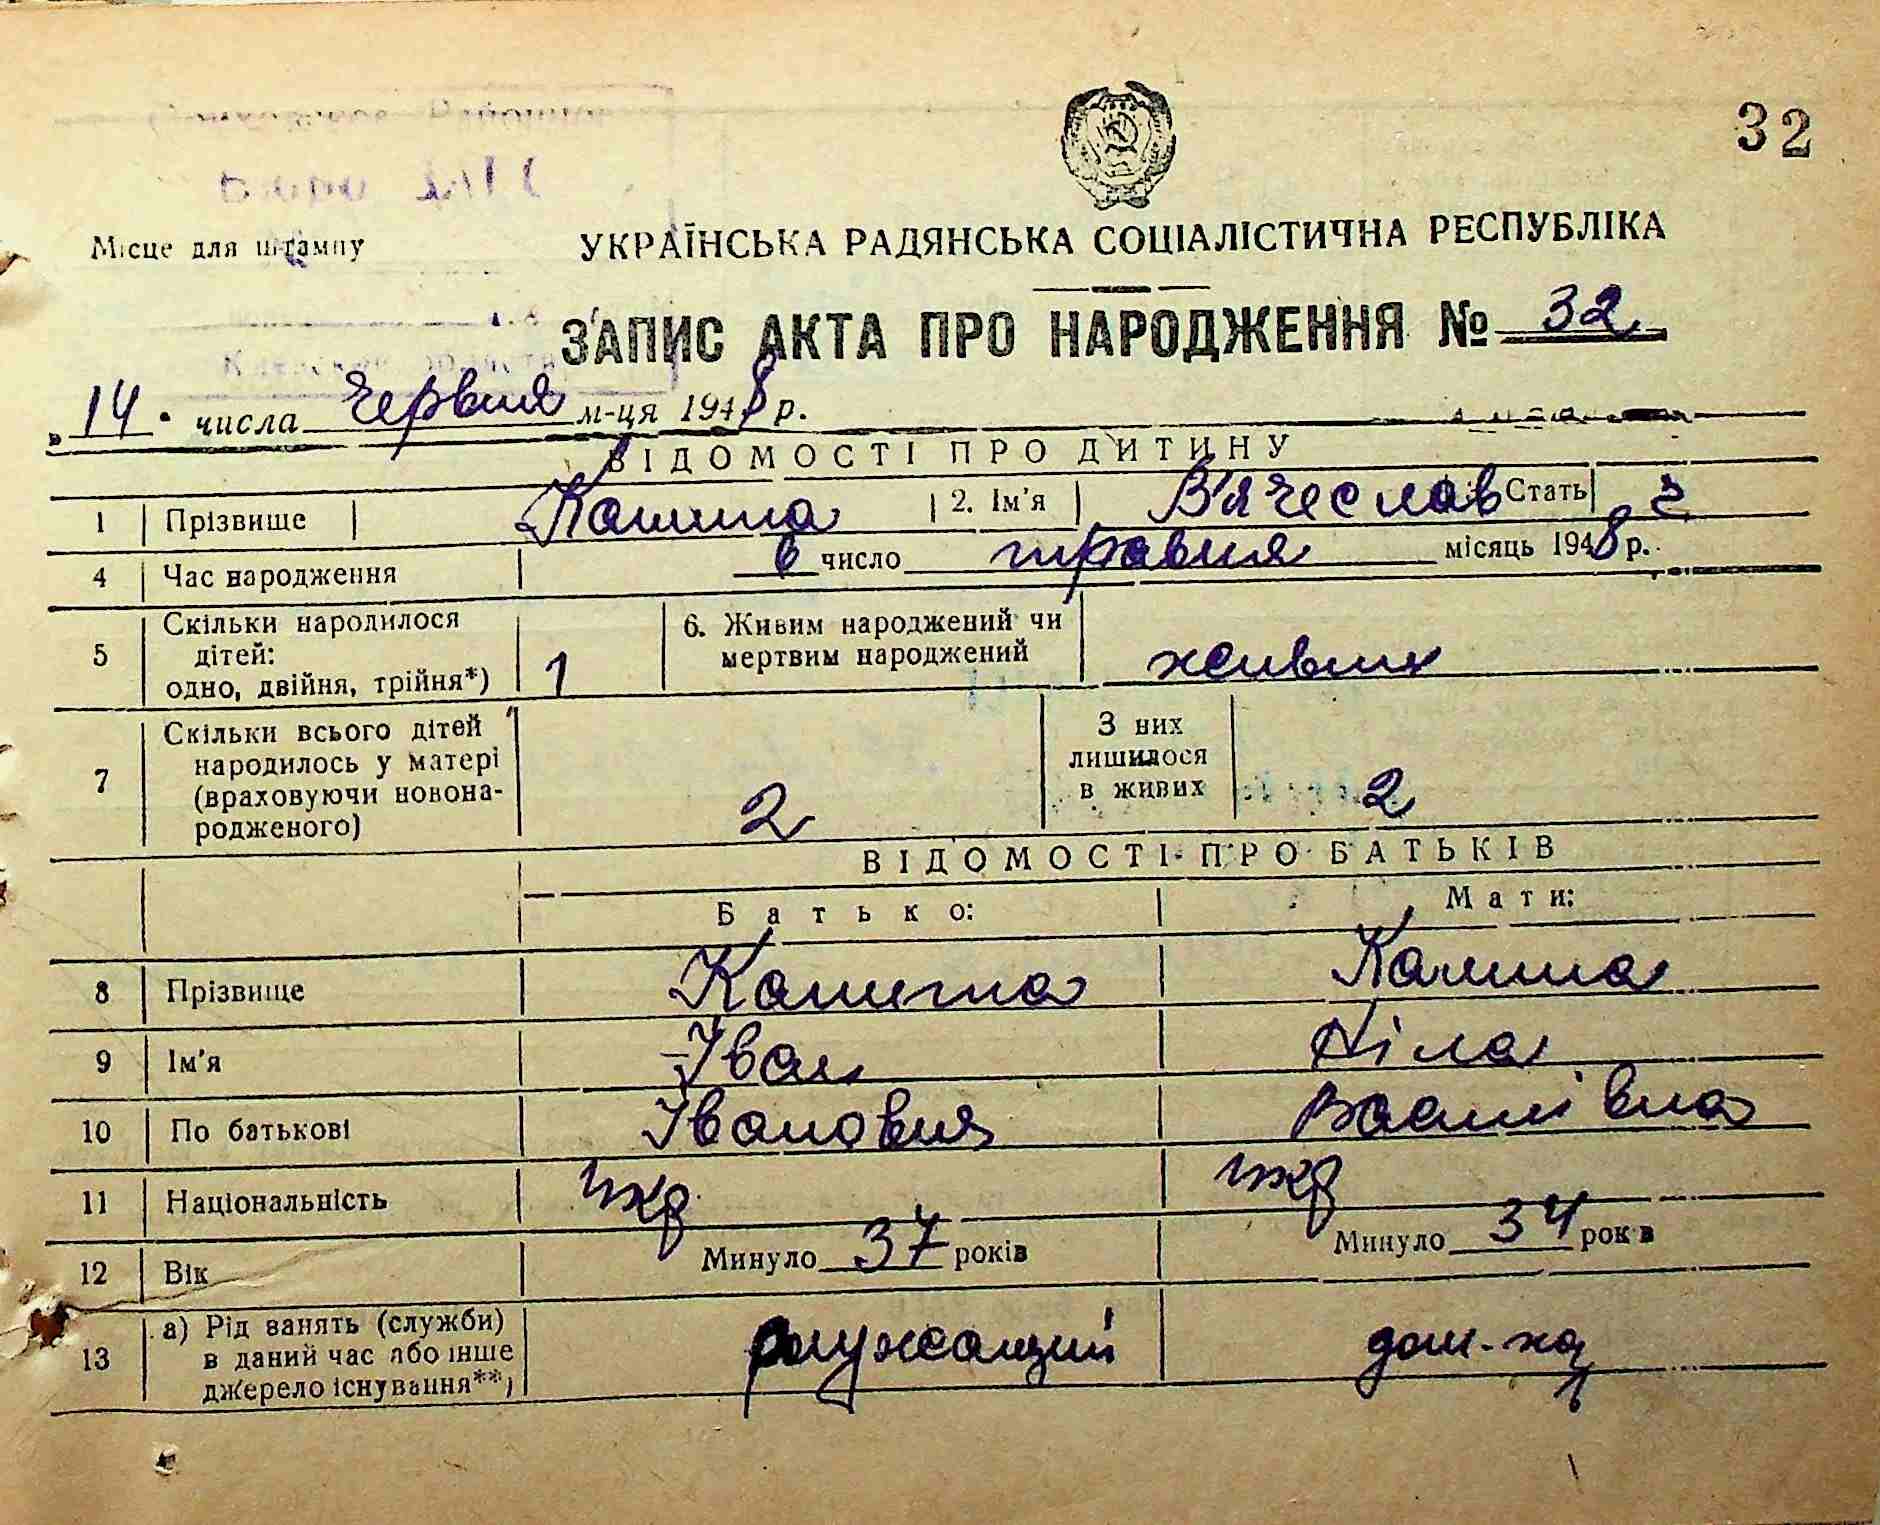 32
Місце для штампу
УКРАЇНСЬКА РАДЯНСЬКА СОЦІАЛІСТИЧНА РЕСПУБЛІКА
ЗАПИС АКТА ПРО НАРОДЖЕННЯ № 32
„14" числа червня м-ця 1948 р.
ВІДОМОСТІ ПРО ДИТИНУ
1 Прізвище Калина 2. Ім'я В'ячеслав Стать ч
4 Час народження 6 число травня місяць 1948 р.
5 Скільки народилося дітей: одно, двійня, трійня*) 1 6. Живим народжений чи мертвим народжений живим
7 Скільки всього дітей народилось у матері (враховуючи новонародженого) 2 З них лишилося в живих 2
ВІДОМОСТІ ПРО БАТЬКІВ
Батько: Мати:
8 Прізвище Калина Калина
9 Ім'я Іван Ніла
10 По батькові Іванович Василівна
11 Національність укр укр
12 Вік Минуло 37 років Минуло 34 років
13 а) Рід занять (служби) в даний час або інше джерело існування**) служащий дом-хаз